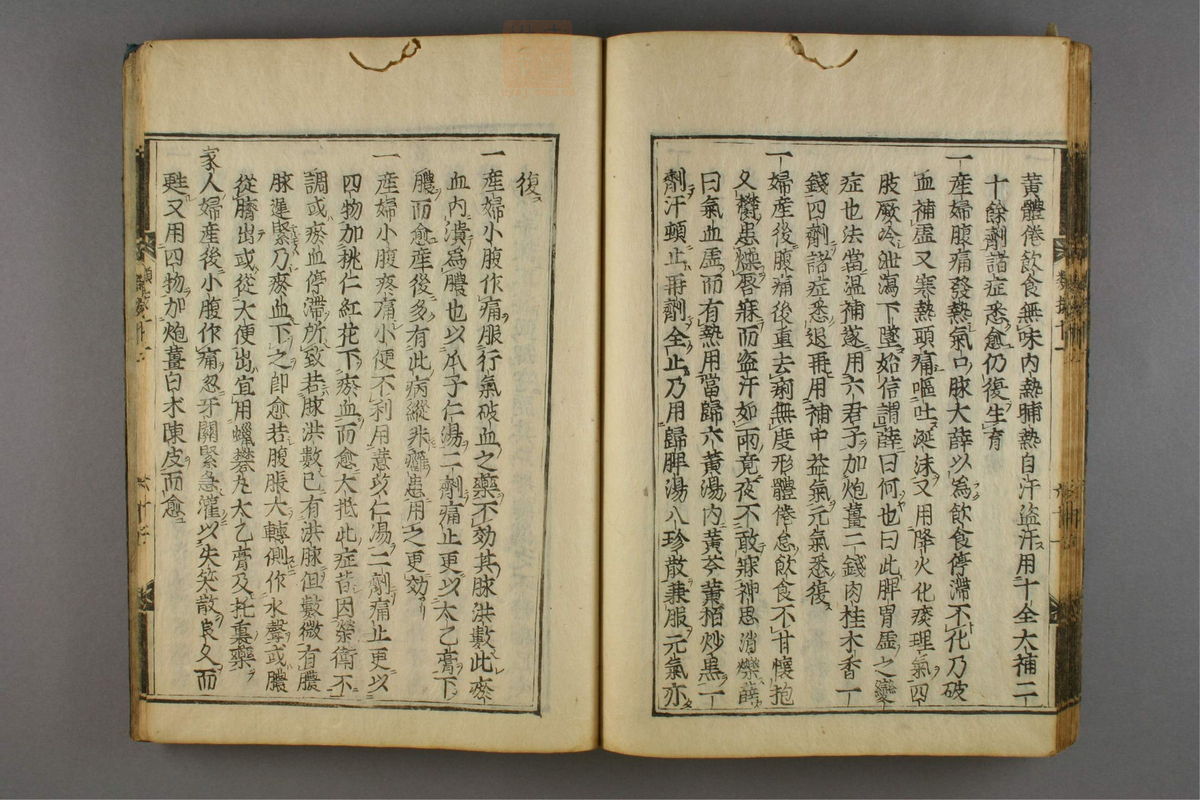 黃體倦飲食無味內熱晡熱自汗盜汗用十全大補二
十餘劑諸症悉愈仍復生育
一産婦腹痛發熱氣口脉大薛以為飲食停滯不化乃破
血補虛又寒熱頭痛嘔吐涎沫又用降火化痰理氣四
肢厥冷泄瀉下墜始信謂薛曰何也曰此脾胃虛之變
症也法當溫補遂用六君子加炮薑二錢肉桂木香一
錢四劑諸症悉退再用補中益氣元氣悉復
一婦産後腹痛後重去痢無度形體倦怠飲食不甘懷抱
久欝患燥唇寐而盜汗如雨竟夜不敢寐神思消爍薛
曰氣血虛而有熱用當歸六黃湯內黃芩黃栢炒黒一
劑汗頓止再劑全止乃用歸脾湯八珍散兼服元氣亦
復
一産婦小腹作痛服行氣破血之藥不効其脉洪數此瘀
血內潰為膿也以瓜子仁湯二劑痛止更以太乙膏下
膿而愈産後多有此病縱非癰患用之更効
一産婦小腹疼痛小便不利用薏苡仁湯二劑痛止更以
四物加桃仁紅花下瘀血而愈大抵此症皆因榮衛不
調或瘀血停滯所致若脉洪數已有洪脉但數微有膿
脉遲緊乃瘀血下之卽愈若腹脹大轉側作水聲或膿
從臍出或從大便出宜用蠟礬丸太乙膏及托裏藥
一家人婦産後小腹作痛忽牙關緊急灌以失笑散良久而
甦又用四物加炮薑白朮陳皮而愈